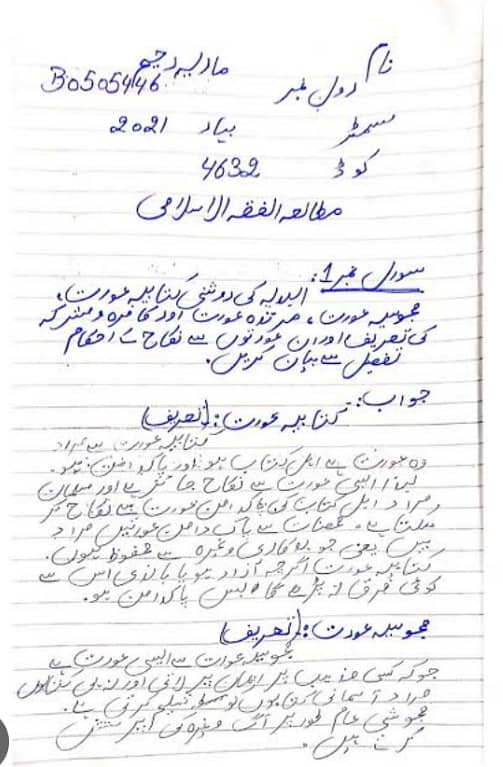 نام ماریہ رحیم
رول نمبر B0505446
سمسٹر بہار 2021
کوڈ 4632
مطالعہ الفقہ الاسلامی
سوال نمبر 1: الہدایہ کی روشنی کتابیہ عورت،
مجوسیہ عورت، مرتدہ عورت اور کافرہ و مشرکہ
کی تعریف اور ان عورتوں سے نکاح کے احکام
تفصیل سے بیان کریں۔
جواب:
کتابیہ عورت: (تعریف)
کتابیہ عورت سے مراد
وہ عورت ہے اہل کتاب ہو اور پاک دامن ہو۔
لہذا ایسی عورت سے نکاح جائز ہے اور مسلمان
مرد اہل کتاب کی پاک دامن عورت سے نکاح کر
سکتا ہے۔ محصنات سے پاک دامن عورتیں مراد
ہیں یعنی جو بدکاری وغیرہ سے محفوظ ہوں۔
کتابیہ عورت اگرچہ آزاد ہو یا باندی اس سے
کوئی فرق نہ پڑے گا بس پاک دامن ہو۔
مجوسیہ عورت: (تعریف)
مجوسیہ عورت سے ایسی عورت ہے
جو کہ کسی مذہب پر ایمان نہیں لاتی اور نہ ہی کتابوں
مراد آسمانی کتابوں کو تسلیم کرتی ہے۔
مجوسی عام طور پر آگ وغیرہ کی پرستش
کرتے ہیں۔